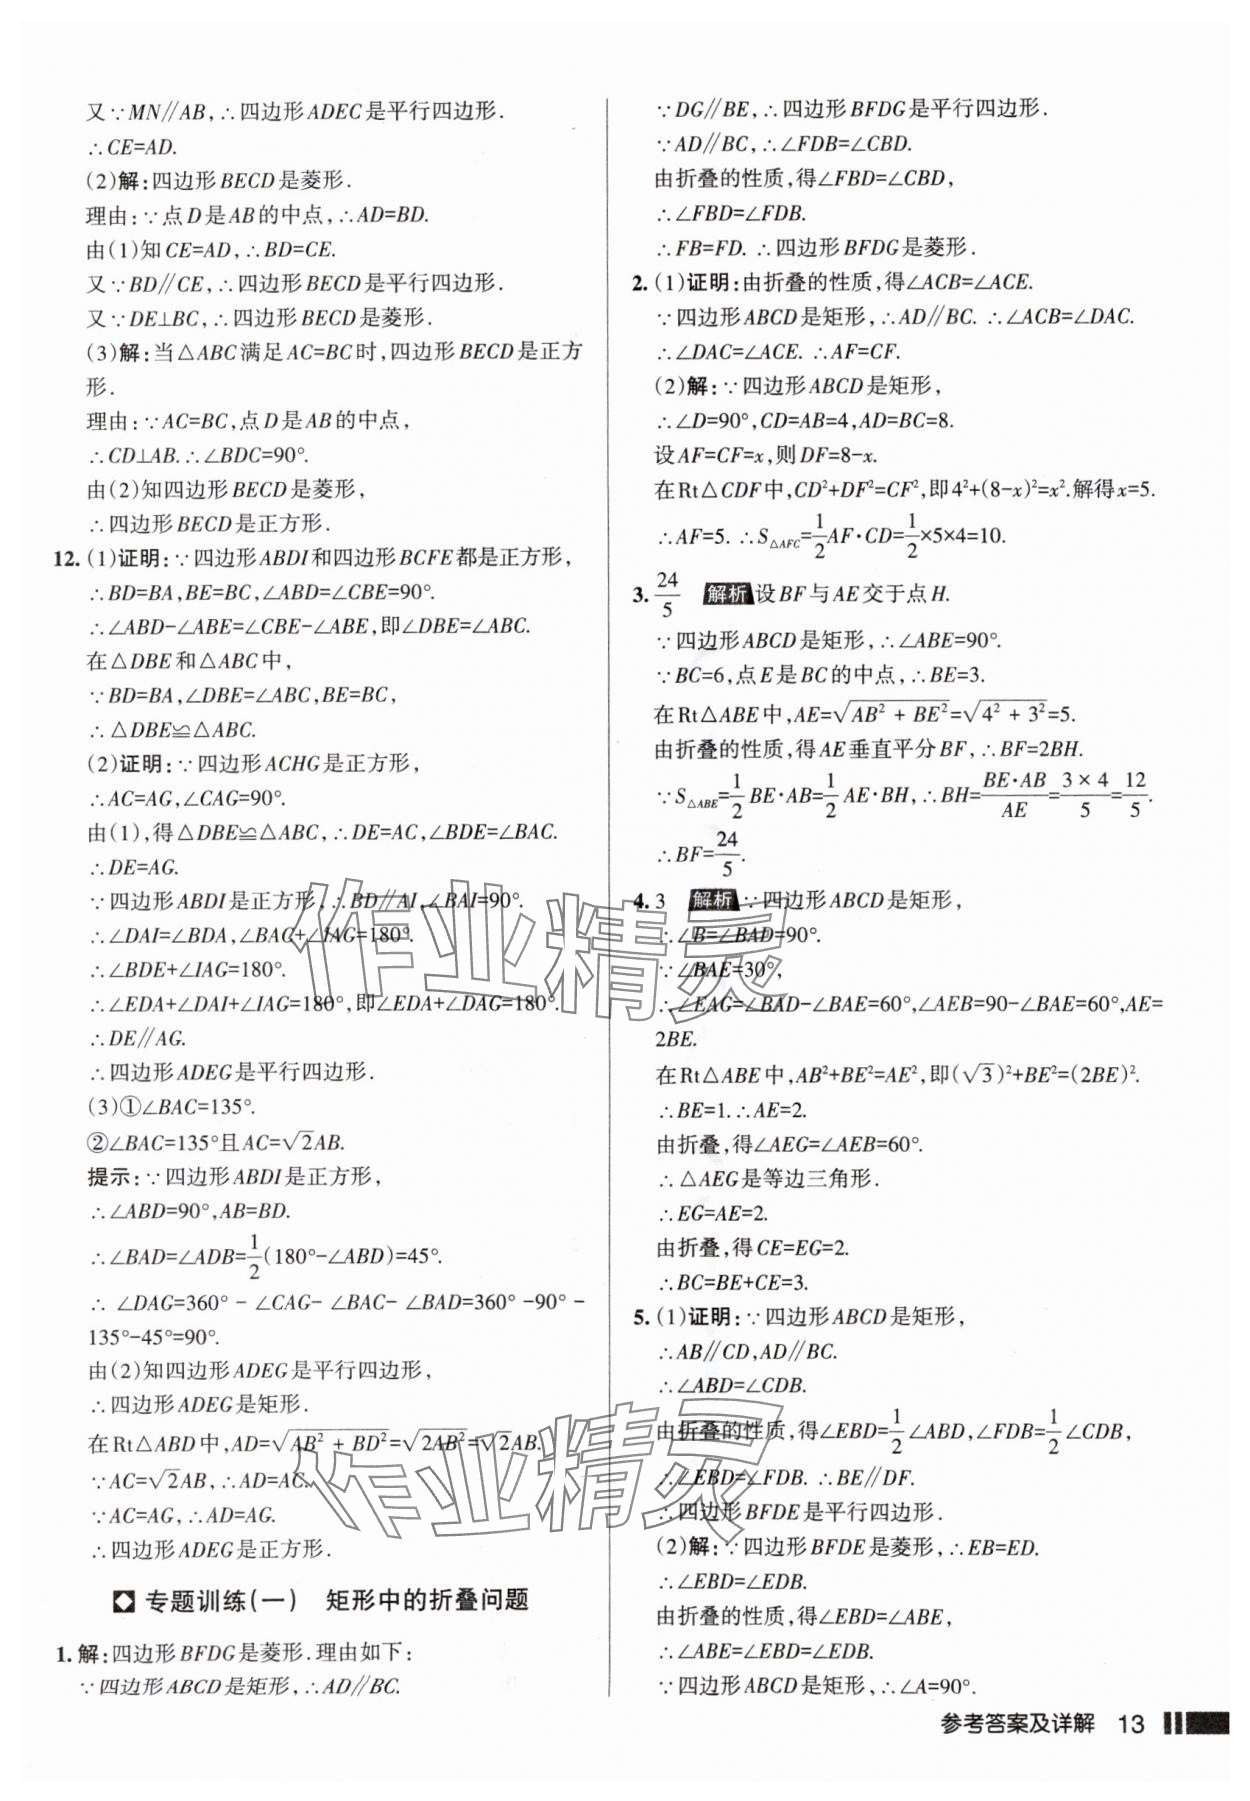 又∵MN∥AB,∴四边形ADEC是平行四边形.
∴CE=AD.
(2)解:四边形BECD是菱形.
理由:∵点D是AB的中点,∴AD=BD.
由(1)知CE=AD,∴BD=CE.
又∵BD∥CE,∴四边形BECD是平行四边形.
又∵DE⊥BC,∴四边形BECD是菱形.
(3)解:当△ABC满足AC=BC时,四边形BECD是正方
形.
理由:∵AC=BC,点D是AB的中点,
∴CD⊥AB.∴∠BDC=90°.
由(2)知四边形BECD是菱形,
∴四边形BECD是正方形.
12.(1)证明:∵四边形ABDI和四边形BCFE都是正方形,
∴BD=BA,BE=BC,∠ABD=∠CBE=90°.
∴∠ABD-∠ABE=∠CBE-∠ABE,即∠DBE=∠ABC.
在△DBE和△ABC中,
∵BD=BA,∠DBE=∠ABC,BE=BC,
∴△DBE≌△ABC.
(2)证明:∵四边形ACHG是正方形,
∴AC=AG,∠CAG=90°.
由(1),得△DBE≌△ABC,∴DE=AC,∠BDE=∠BAC.
∴DE=AG.
∵四边形ABDI是正方形,∴BD∥AI,∠BAI=90°.
∴∠DAI=∠BDA,∠BAC+∠IAG=180°.
∴∠BDE+∠IAG=180°.
∴∠EDA+∠DAI+∠IAG=180°,即∠EDA+∠DAG=180°.
∴DE∥AG.
∴四边形ADEG是平行四边形.
(3)①∠BAC=135°.
②∠BAC=135°且AC=√2AB.
提示:∵四边形ABDI是正方形,
∴∠ABD=90°,AB=BD.
∴∠BAD=∠ADB=1/2(180°-∠ABD)=45°.
∴ ∠DAG=360° - ∠CAG- ∠BAC- ∠BAD=360° -90° -
135°-45°=90°.
由(2)知四边形ADEG是平行四边形,
∴四边形ADEG是矩形.
在Rt△ABD中,AD=√(AB²+BD²)=√(2AB²)=√2AB.
∵AC=√2AB,∴AD=AC.
∵AC=AG,∴AD=AG.
∴四边形ADEG是正方形.
专题训练(一) 矩形中的折叠问题
1.解:四边形BFDG是菱形.理由如下:
∵四边形ABCD是矩形,∴AD∥BC.
∵DG∥BE,∴四边形BFDG是平行四边形.
∵AD∥BC,∴∠FDB=∠CBD.
由折叠的性质,得∠FBD=∠CBD,
∴∠FBD=∠FDB.
∴FB=FD. ∴四边形BFDG是菱形.
2.(1)证明:由折叠的性质,得∠ACB=∠ACE.
∵四边形ABCD是矩形,∴AD∥BC. ∴∠ACB=∠DAC.
∴∠DAC=∠ACE. ∴AF=CF.
(2)解:∵四边形ABCD是矩形,
∴∠D=90°,CD=AB=4,AD=BC=8.
设AF=CF=x,则DF=8-x.
在Rt△CDF中,CD²+DF²=CF²,即4²+(8-x)²=x².解得x=5.
∴AF=5. ∴S△AFC=1/2AF·CD=1/2×5×4=10.
3. 24/5 解析 设BF与AE交于点H.
∵四边形ABCD是矩形,∴∠ABE=90°.
∵BC=6,点E是BC的中点,∴BE=3.
在Rt△ABE中,AE=√(AB²+BE²)=√(4²+3²)=5.
由折叠的性质,得AE垂直平分BF,∴BF=2BH.
∵S△ABE=1/2BE·AB=1/2AE·BH,∴BH=BE·AB/AE=3×4/5=12/5.
∴BF=24/5.
4. 3 解析 ∵四边形ABCD是矩形,
∴∠B=∠BAD=90°.
∵∠BAE=30°,
∴∠EAG=∠BAD-∠BAE=60°,∠AEB=90-∠BAE=60°,AE=
2BE.
在Rt△ABE中,AB²+BE²=AE²,即(√3)²+BE²=(2BE)².
∴BE=1.∴AE=2.
由折叠,得∠AEG=∠AEB=60°.
∴△AEG是等边三角形.
∴EG=AE=2.
由折叠,得CE=EG=2.
∴BC=BE+CE=3.
5.(1)证明:∵四边形ABCD是矩形,
∴AB∥CD,AD∥BC.
∴∠ABD=∠CDB.
由折叠的性质,得∠EBD=1/2∠ABD,∠FDB=1/2∠CDB,
∴∠EBD=∠FDB. ∴BE∥DF.
∴四边形BFDE是平行四边形.
(2)解:∵四边形BFDE是菱形,∴EB=ED.
∴∠EBD=∠EDB.
由折叠的性质,得∠EBD=∠ABE,
∴∠ABE=∠EBD=∠EDB.
∵四边形ABCD是矩形,∴∠A=90°.
参考答案及详解 13
作业精灵
作业精灵